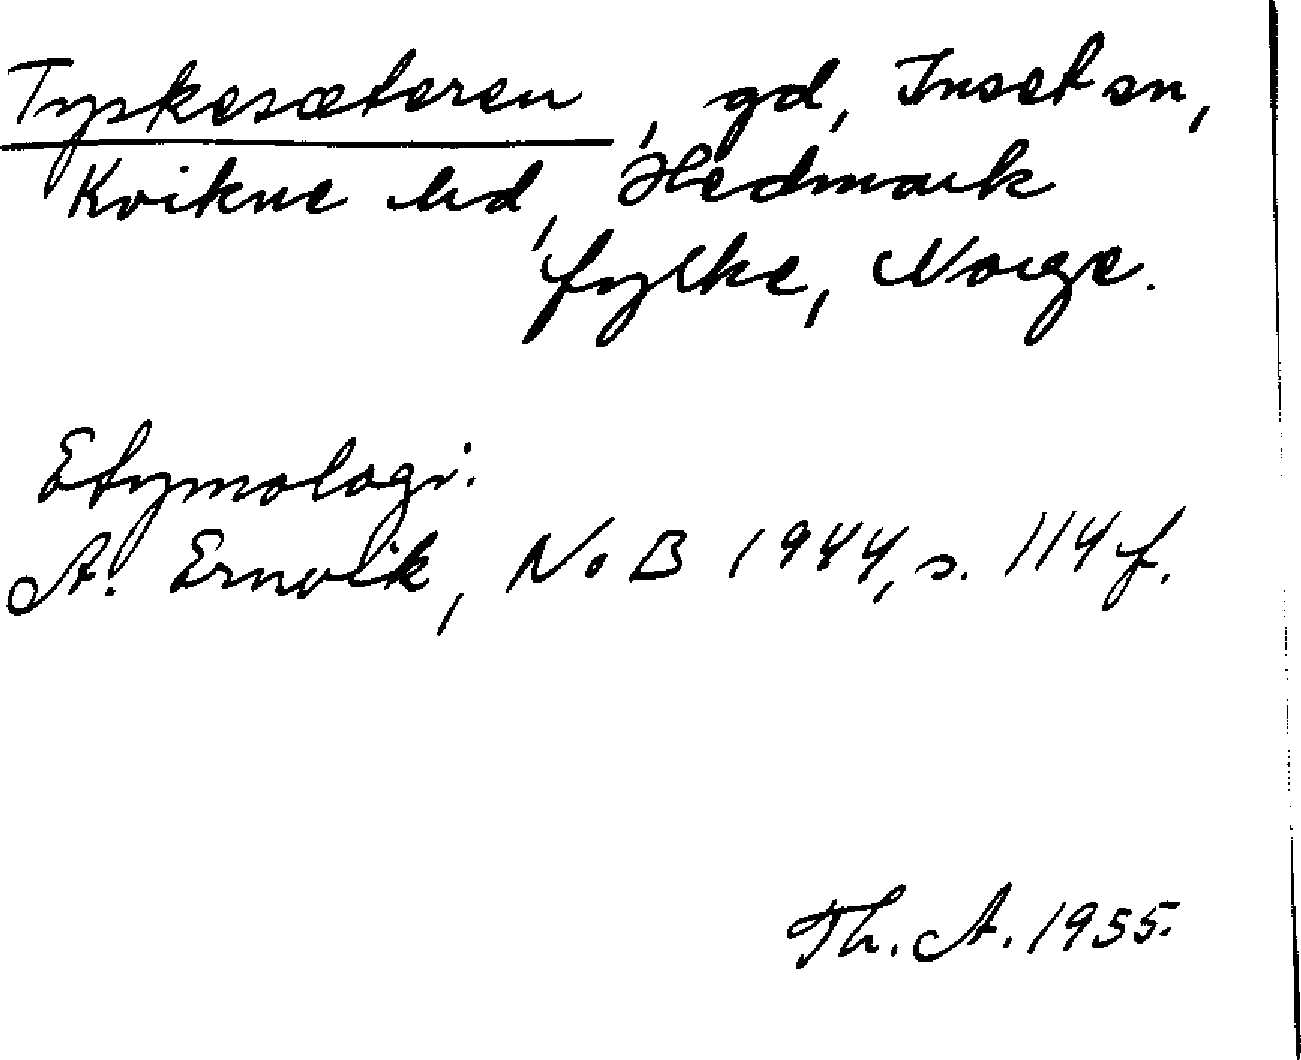 Tyskesæteren, gd, Inset sn,
Kvikne hd, Hedmark
fylke, Norge.
Etymologi:
A. Ernvik, NoB 1944, s. 114 f.
Th. A. 1955.